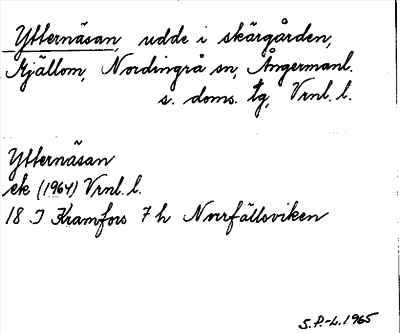 Ytternäsan, udde i skärgården,
Mjällom, Nordingrå sn, Ångermanl.
s. doms. tg, Vrnl. l.
Ytternäsan
ek (1964) Vrnl. l.
18 I Kramfors 7 h Norrfällsviken
S.P.-L. 1965